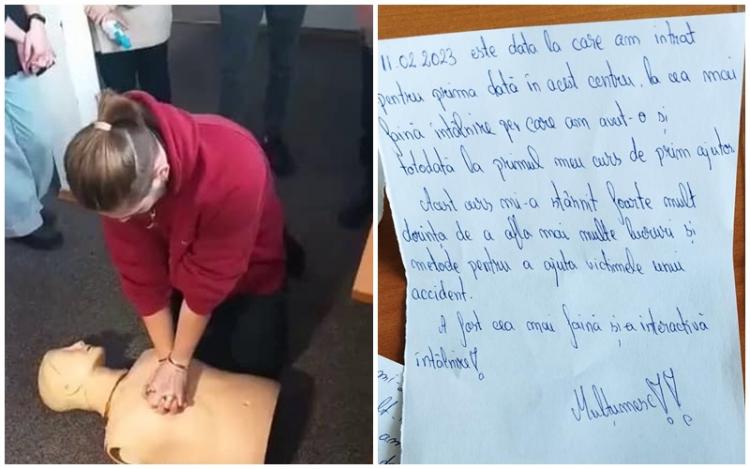 11.02.2023 este data la care am intrat
pentru prima dată în acest centru, la cea mai
faină întâlnire pe care am avut-o și
totodată la primul meu curs de prim ajutor.
Acest curs mi-a stârnit foarte mult
dorința de a afla mai multe lucruri și
metode pentru a ajuta victimele unui
accident.
A fost cea mai faină și-a interactivă
întâlnire!
Mulțumesc!!